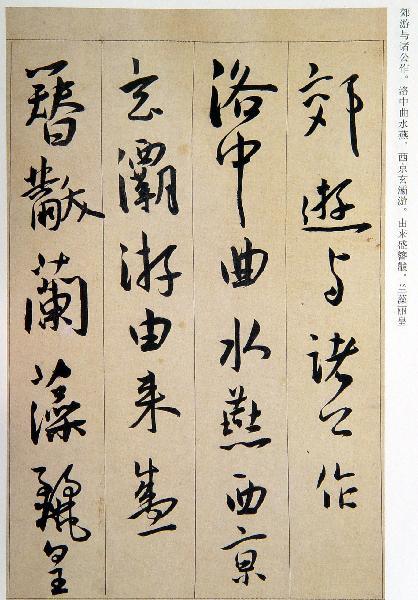 郊游与诸公作。洛中曲水燕，西京玄灞游。由来盛簪黻，兰藻丽皇
郊遊与諸公作
洛中曲水燕西京
玄灞游由来盛
簪黻蘭藻麗皇